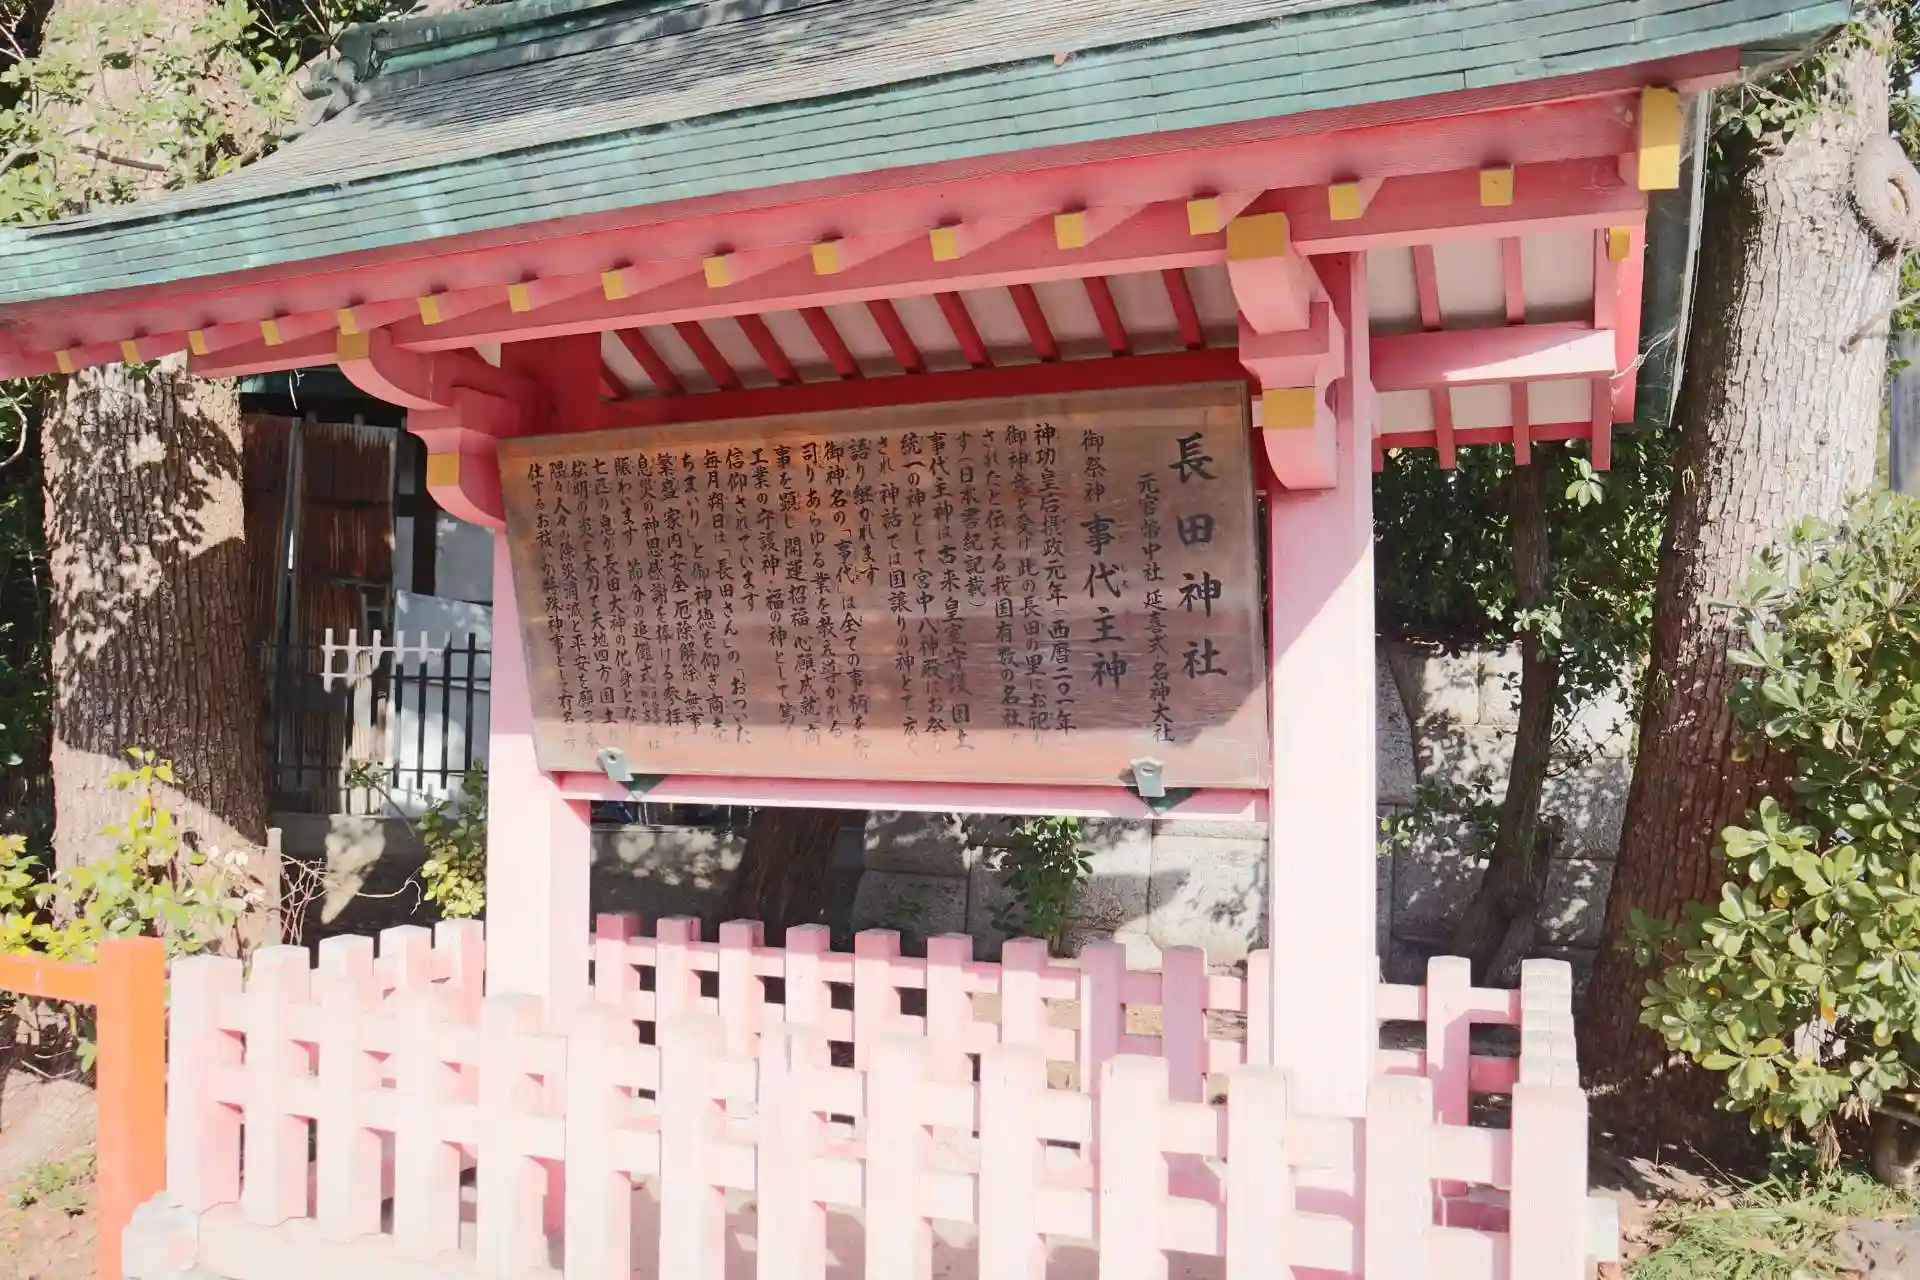 長田神社
元官幣中社 延喜式名神大社
御祭神 事代主神
神功皇后摂政元年(西暦二〇一年)
御神誨を受け此の長田の里にお祀り
されたと伝える我国有数の名社で
す(日本書紀記載)
事代主神は古来皇室守護 国土
統一の神として宮中八神殿にお祭り
され 神話では国譲りの神として広く
語り継がれます
御神名の「事代」は全ての事柄を知り
司りあらゆる業を教え導かれる
事を顕し 開運招福 心願成就 商
工業の守護神 福の神として篤く
信仰されています
毎月朔日は「長田さん」の「おついた
ちまいり」と御神徳を仰ぎ商売
繁盛 家内安全 厄除解除 無事
息災の神恩感謝を捧げる参拝で
賑わいます 節分の追儺式は
七匹の鬼が長田大神の代身となり
松明の炎と太刀で天地四方国土の
隅々人々の除災消滅と平安を願って奉
仕するお祓いの特殊神事として有名です